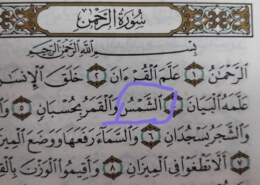 سُورَةُ الرَّحْمَٰن
بِسْمِ اللَّهِ الرَّحْمَٰنِ الرَّحِيمِ
الرَّحْمَٰنُ ١ عَلَّمَ الْقُرْءَانَ ٢ خَلَقَ الْإِنسَٰ
عَلَّمَهُ الْبَيَانَ ٤ الشَّمْسُ وَالْقَمَرُ بِحُسْبَانٍ ٥
وَالشَّجَرُ يَسْجُدَانِ ٦ وَالسَّمَآءَ رَفَعَهَا وَوَضَعَ الْمِيزَ
٧ أَلَّا تَطْغَوْا۟ فِى الْمِيزَانِ ٨ وَأَقِيمُوا۟ الْوَزْنَ بِالْقِ